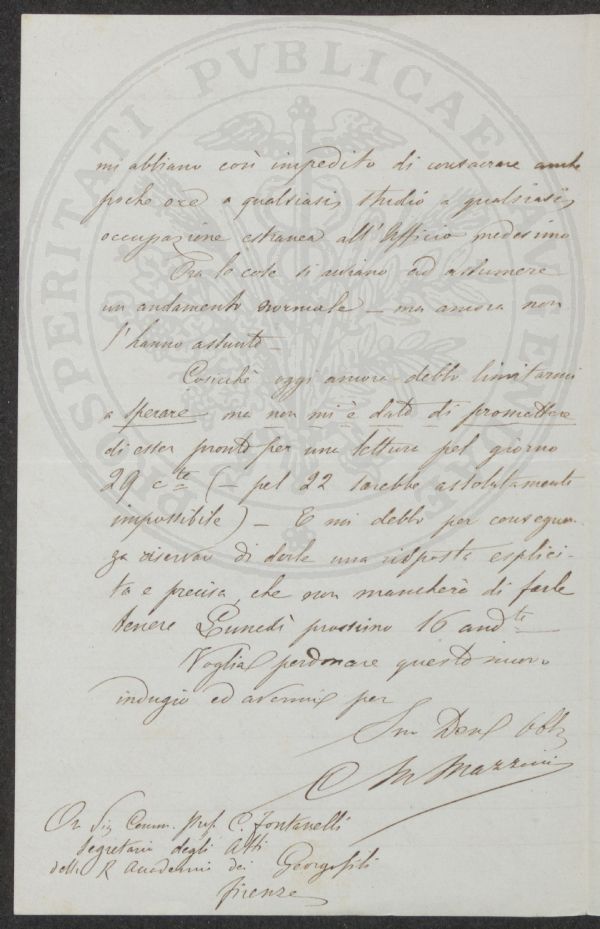 PROSPERITATI PVBLICAE AVGENDAE
mi abbiano così impedito di consacrare anche
poche ore a qualsiasi studio a qualsiasi
occupazione estranea all'Ufficio medesimo
Ora le cose si avviano ad assumere
un andamento normale – ma ancora non
l'hanno assunto –
Cosicchè oggi ancora debbo limitarmi
a sperare ma non mi è dato di promettere
di esser pronto per una lettura pel giorno
29 cte (– pel 22 sarebbe assolutamente
impossibile) – E mi debbo per conseguen-
za riservar di darle una risposta esplici-
ta e precisa, che non mancherò di farle
tenere Lunedì prossimo 16 andte
Voglia perdonare questo nuovo
indugio ed avermi per
Suo Dev Obb
C M Mazzini
On Sig Comm. Prof. C. Fontanelli
Segretario degli Atti
della R Accademia dei Georgofili
Firenze